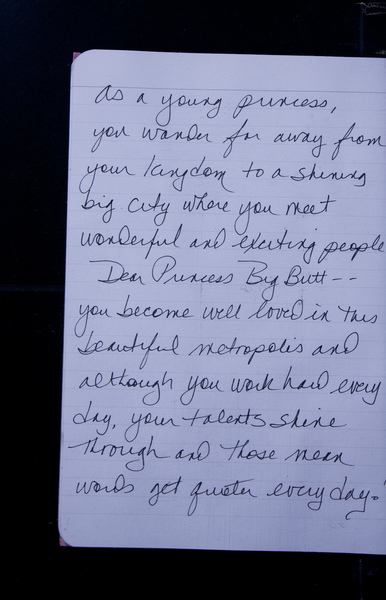 as a young princess,
you wander far away from
your kingdom to a shining
big city where you meet
wonderful and exciting people
Dear Princess Big Butt --
you become well loved in this
beautiful metropolis and
although you work hard every
day, your talents shine
through and those mean
words get quieter every day.